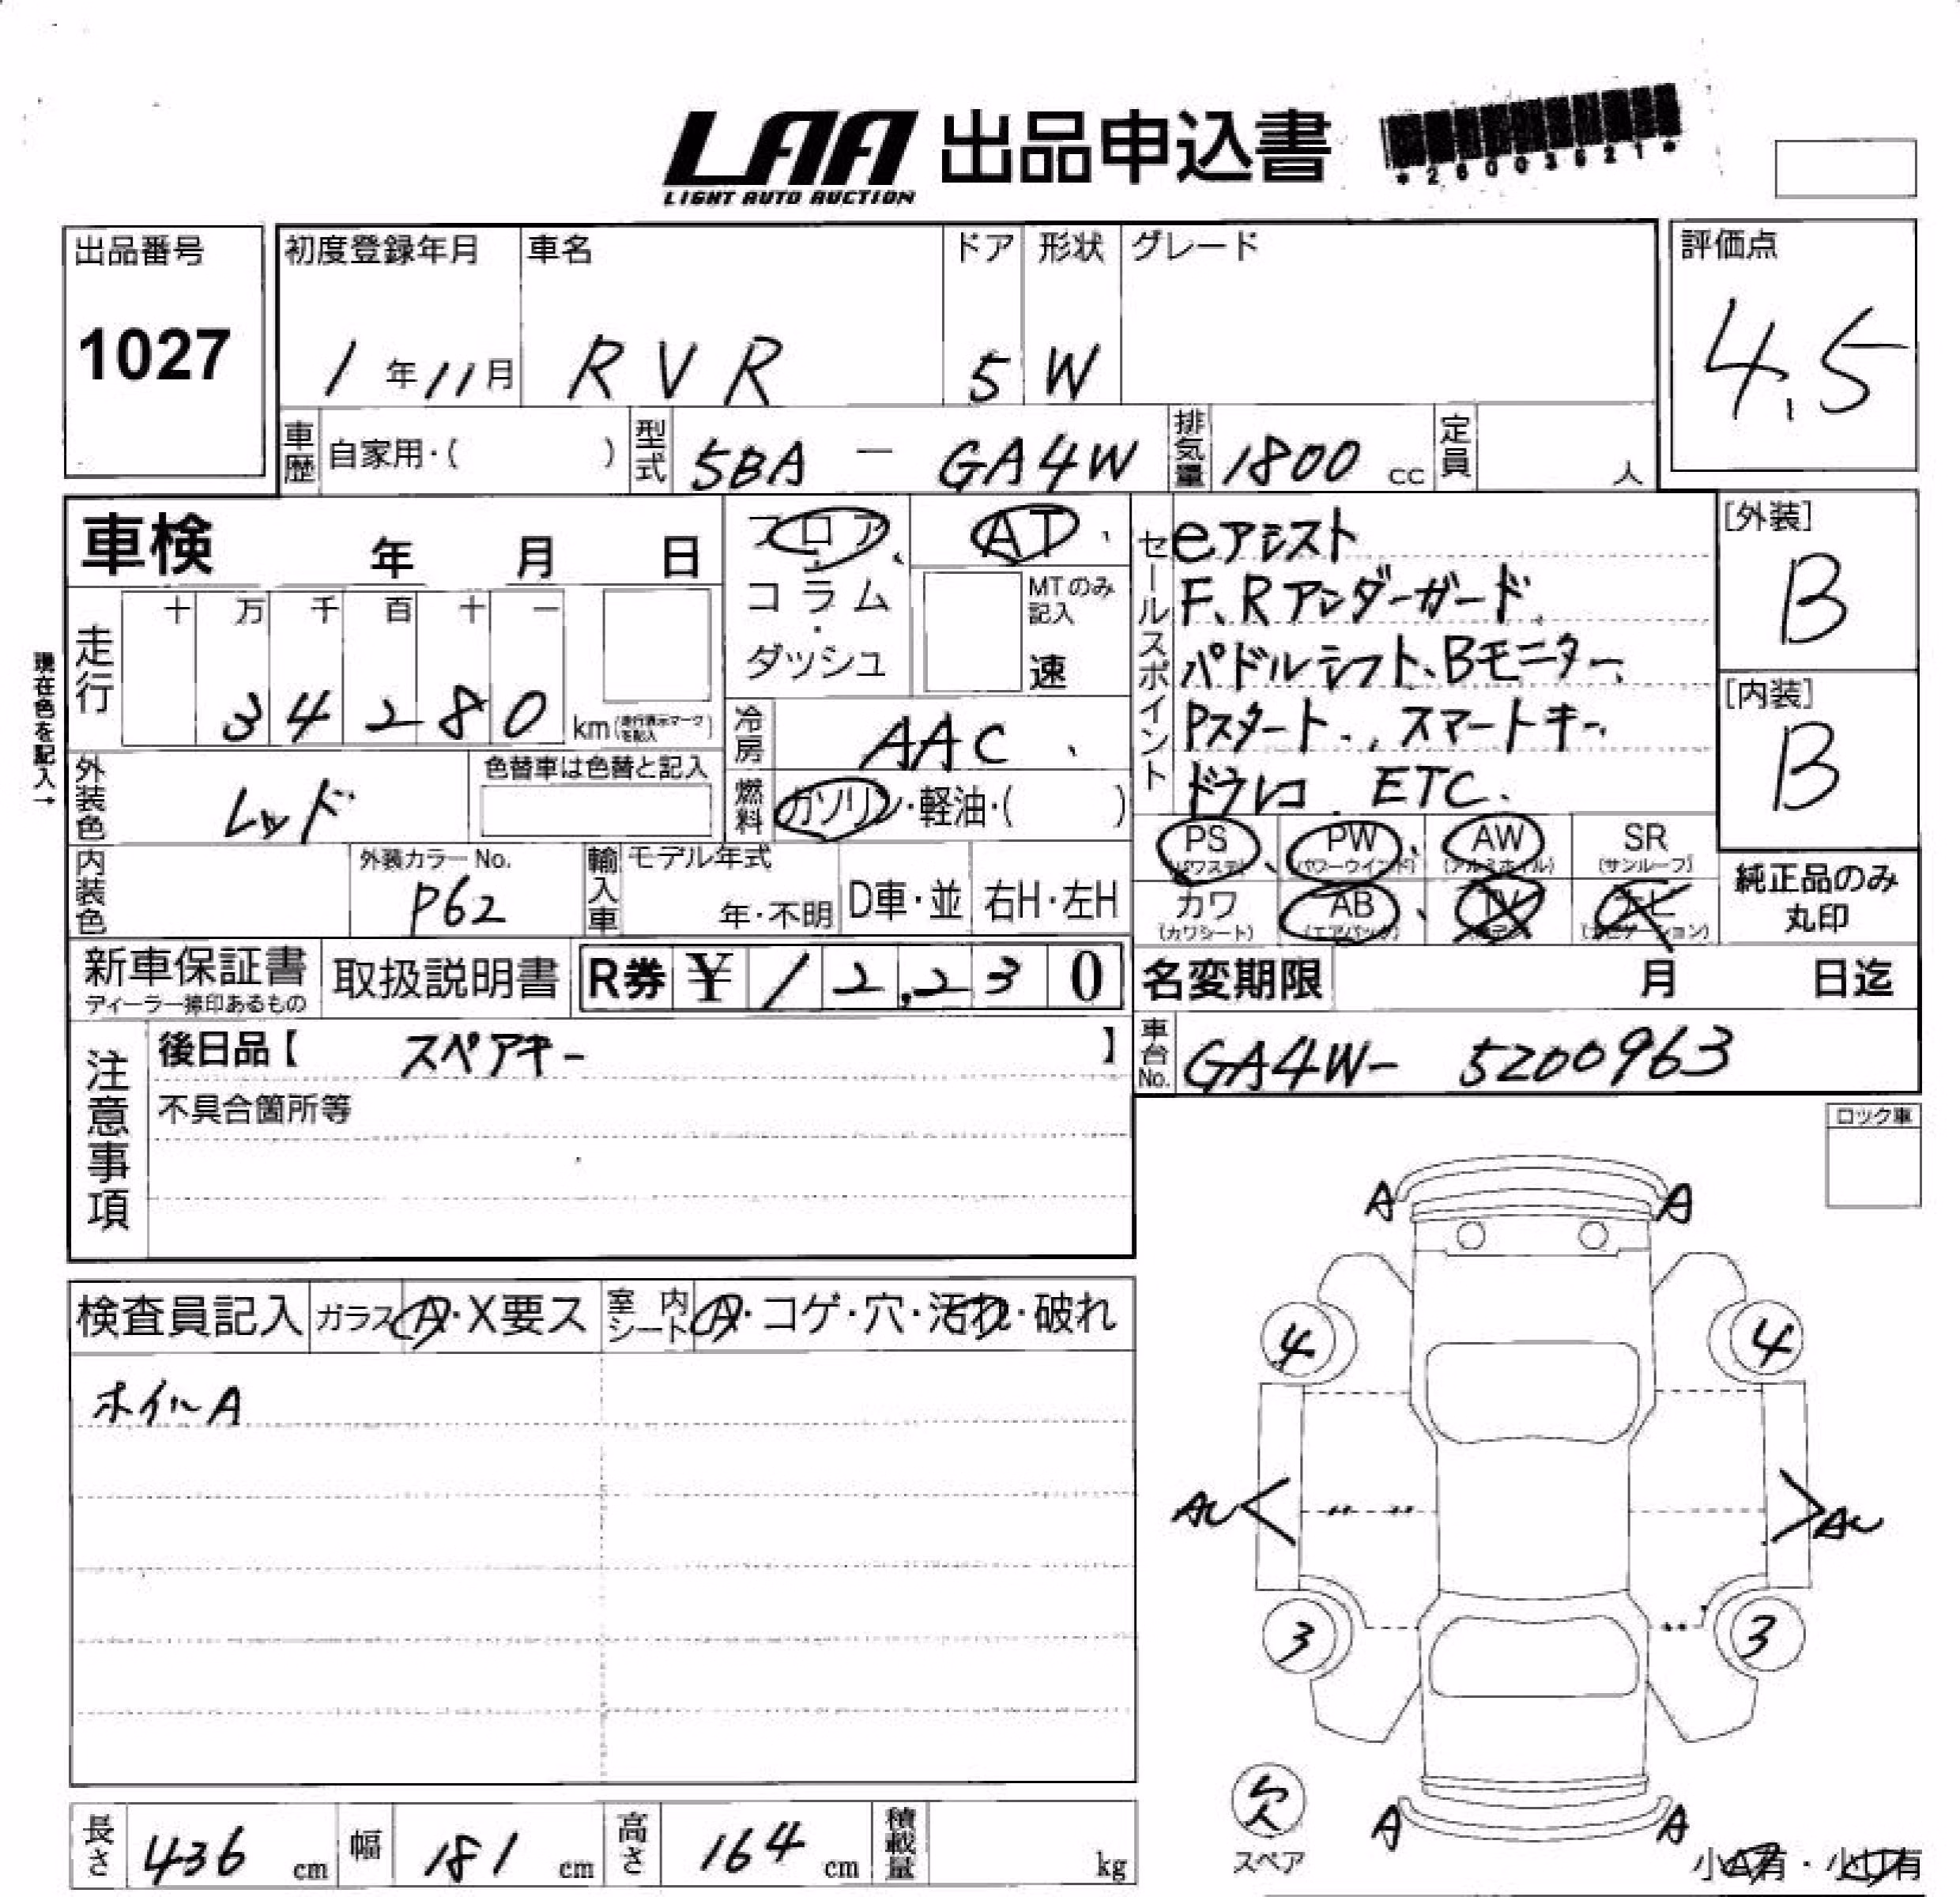 LAA 出品申込書
LIGHT AUTO AUCTION
*26003621*
出品番号
1027
初度登録年月
1年11月
車名
RVR
ドア
5
形状
W
グレード
評価点
4.5
車歴
自家用・( )
型式
5BA - GA4W
排気量
1800 cc
定員
人
車検 年 月 日
フロア
・
コラム
・
ダッシュ
AT
MTのみ記入
速
セールスポイント
eアシスト
F、Rアンダーガード、
パドルシフト、Bモニター、
Pスタート、、スマートキー、
ドラレコ、ETC.
[外装]
B
[内装]
B
現在色を記入→
走行
十 万 千 百 十 一
34280
km(走行表示マークを記入)
冷房
AAC、
外装色
レッド
色替車は色替と記入
燃料
ガソリン・軽油・( )
PS
(パワステ)
PW
(パワーウインド)
AW
(アルミホイル)
SR
(サンルーフ)
カワ
(カワシート)
AB
(エアバック)
TV
純正品のみ
丸印
内装色
外装カラーNo.
P62
輸入車
モデル年式
年・不明
D車・並
右H・左H
新車保証書
ディーラー捺印あるもの
取扱説明書
R券 ¥12,230
名変期限 月 日迄
注意事項
後日品【 スペアキー 】
不具合箇所等
車台No.
GA4W- 5200963
ロック車
検査員記入
ガラス A・X要ス
室内シート
A・コゲ・穴・汚れ・破れ
ホイルA
A A
4 4
AU AU
3 3
欠
スペア
A A
小A有・小U有
長さ 436 cm
幅 181 cm
高さ 164 cm
積載量 kg